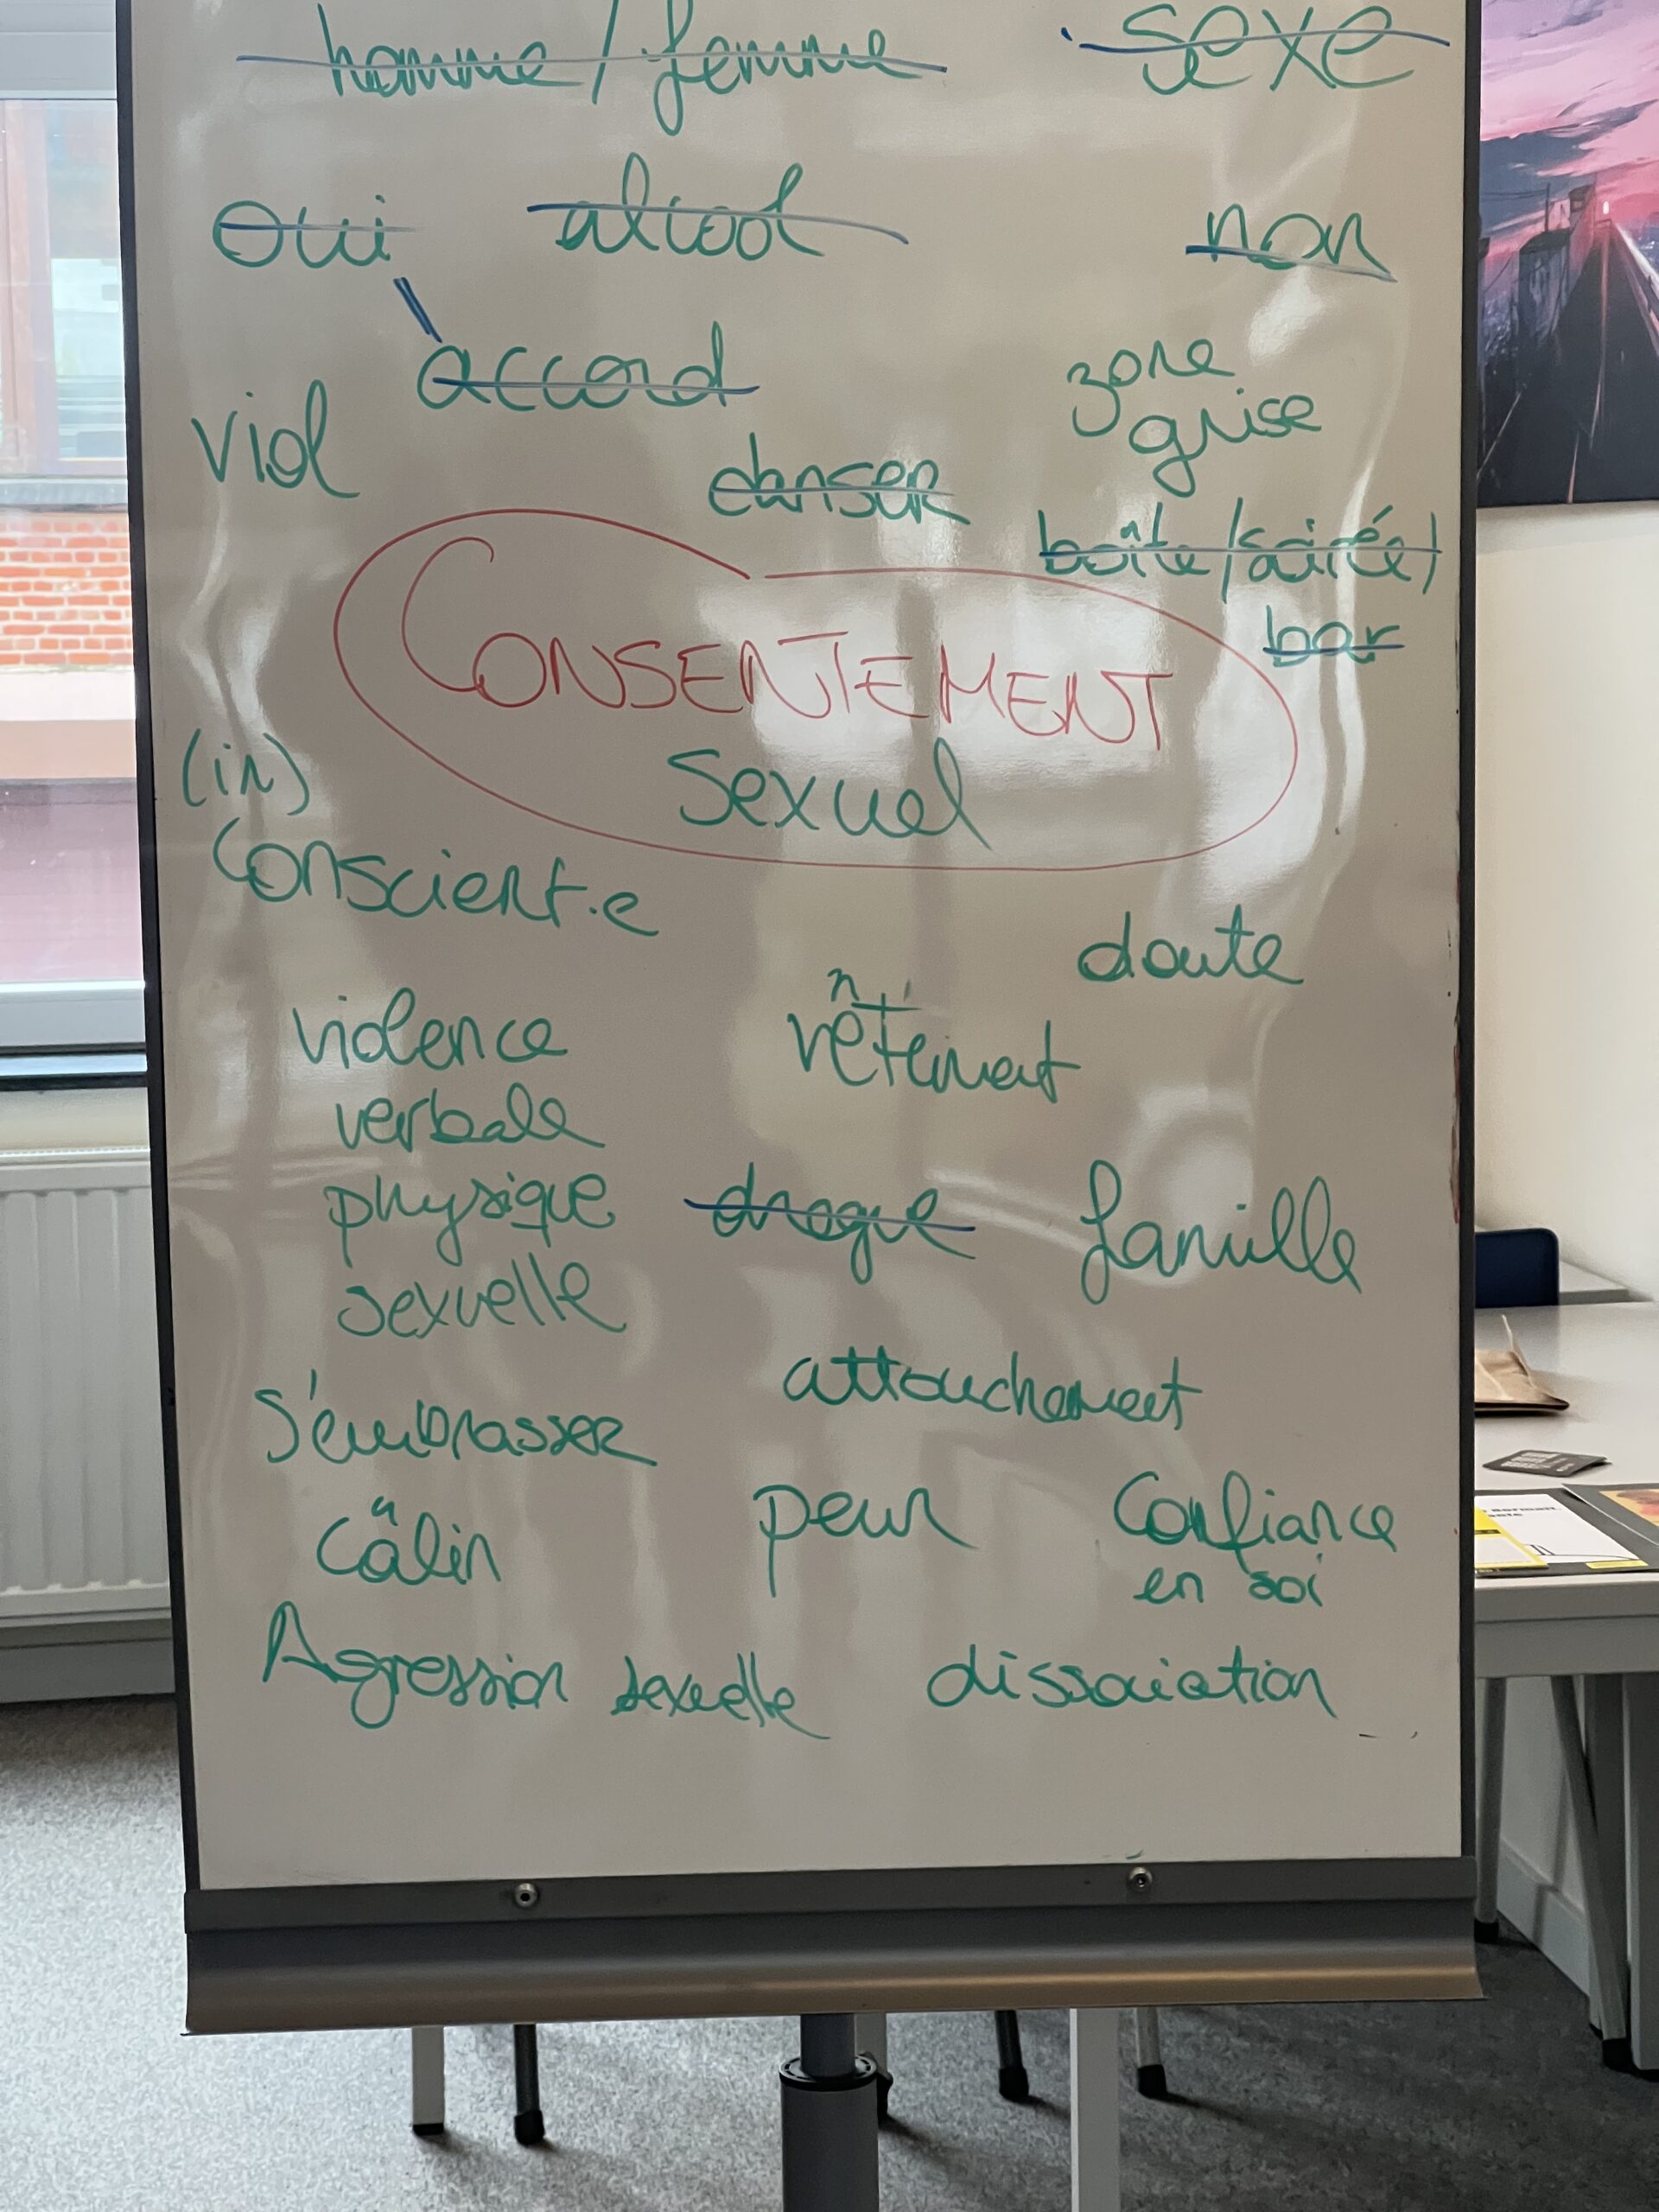 homme / femme
sexe
oui
alcool
non
accord
zone
grise
viol
danser
boîte/soirée/
bar
CONSENTEMENT
sexuel
(in)
conscient·e
doute
violence
verbale
physique
sexuelle
vêtement
drogue
famille
attouchement
s'embrasser
peur
confiance
en soi
câlin
Agression sexuelle
dissociation